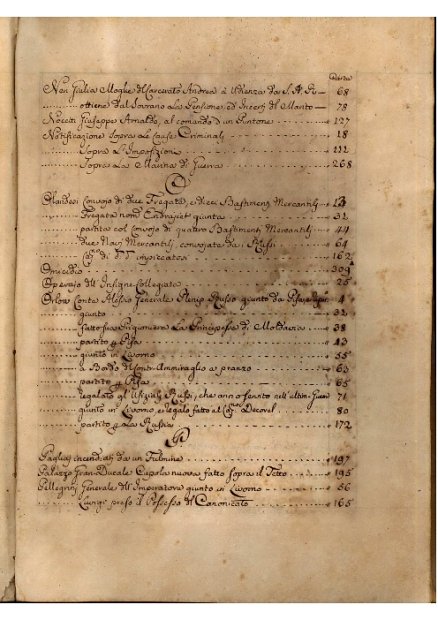 Carta
Non Giulia Moglie del Carcerato Andrea a Udienza da S. A. R. 68
ottiene dal Sovrano la Pensione, ed Incerti del Marito 78
Nocciti Giuseppe Arnaldo, al comando d'un Pontone 127
Notificazione sopra le Cause Criminali 18
sopra l'Imposizioni 111
sopra la Marina di Guerra 268
O
Olandesi Convojo di due Fregate, e Dieci Bastimenti Mercantili 13
Fregata nom. giunta 31
partita col Convojo di quattro Bastimenti Mercantili 44
due Navi Mercantili convojate da Russi 64
162
Omicidio 309
Operajo dell'Insigne Collegiata 25
Orlow Conte Alessio Generale Plenip. Russo giunto da Pisa 4
giunto 32
fatto fare Prigioniera la Principessa di Moldavia 38
partito p. Pisa 43
giunto in Livorno 55
a Bordo del Contr'Ammiraglio a pranzo 63
partito p. Pisa 65
regalato gl'Ufiziali Russi, che anno servito nell'ultima Guerra 71
giunto in Livorno, e regalo fatto al 80
partito p. la Russia 172
P
Pagliaj incendiati da un Fulmine 197
Palazzo Gran-Ducale Cupola nuova fatta sopra il Tetto 195
Pellegrini Generale dell'Imperatore giunto in Livorno 56
Luigi preso il Possesso del Canonicato 165